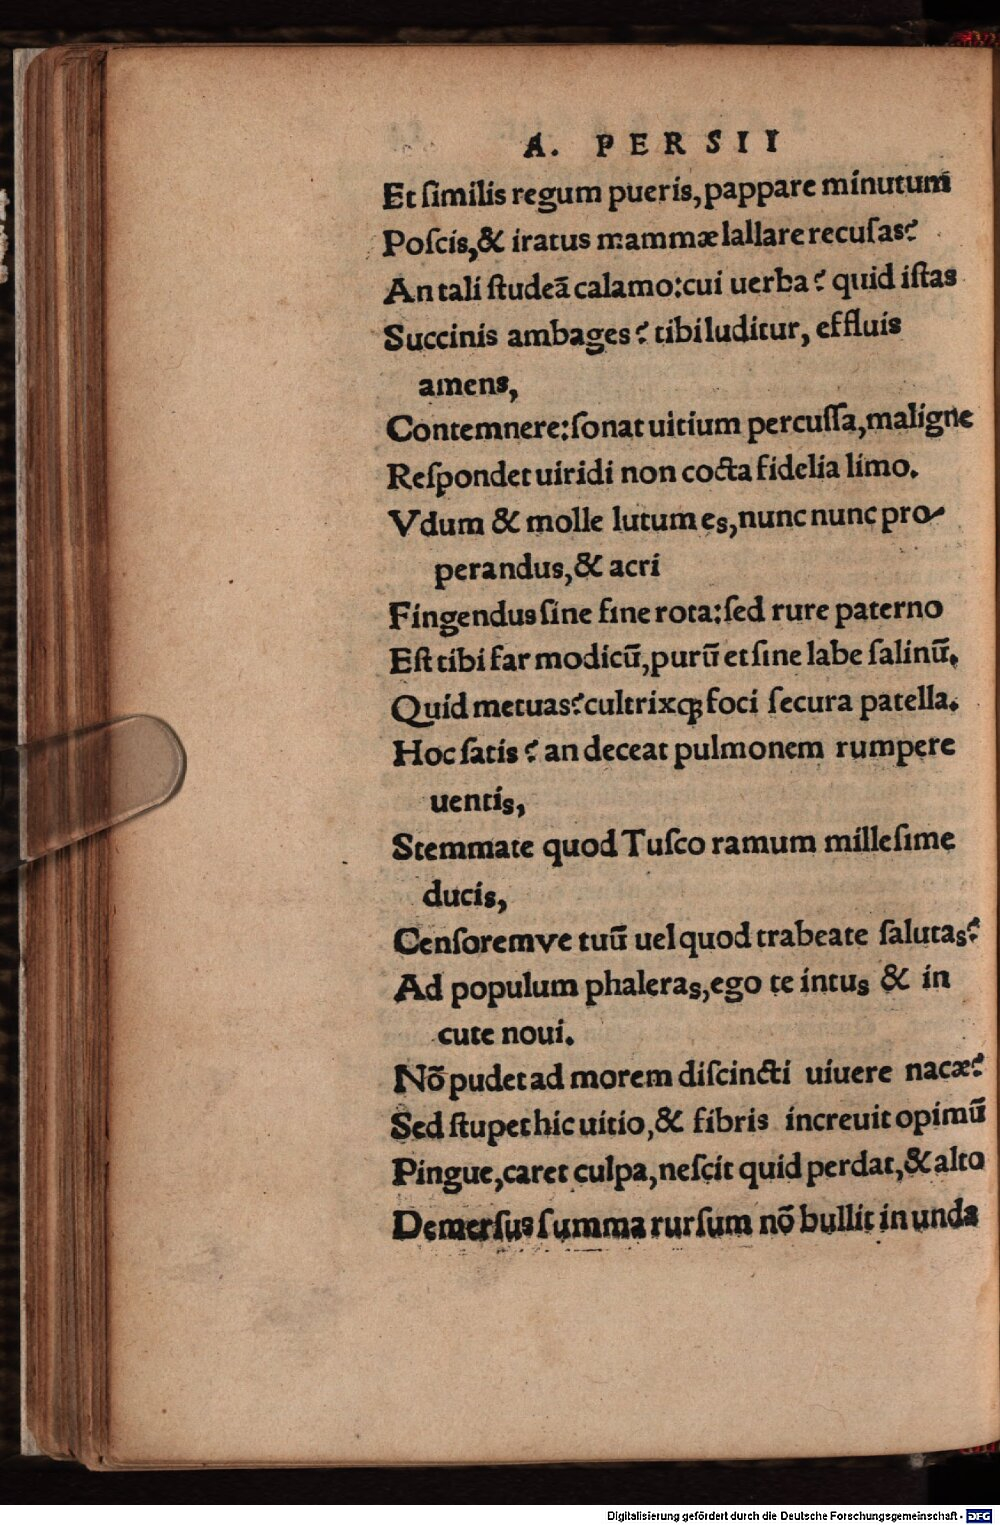 A. PERSII
Et ſimilis regum pueris, pappare minutum
Poſcis, & iratus mammæ lallare recuſas?
An tali ſtudeā calamo: cui uerba? quid iſtas
Succinis ambages? tibi luditur, effluis
amens,
Contemnere: ſonat uitium percuſſa, maligne
Reſpondet uiridi non cocta fidelia limo.
Vdum & molle lutum es, nunc nunc pro-
perandus, & acri
Fingendus ſine fine rota: ſed rure paterno
Eſt tibi far modicū, purū et ſine labe ſalinū.
Quid metuas? cultrixꝗ foci ſecura patella.
Hoc ſatis? an deceat pulmonem rumpere
uentis,
Stemmate quod Tuſco ramum milleſime
ducis,
Cenſoremve tuū uel quod trabeate ſalutas?
Ad populum phaleras, ego te intus & in
cute noui.
Nō pudet ad morem diſcincti uiuere nacæ?
Sed ſtupet hic uitio, & fibris increuit opimū
Pingue, caret culpa, neſcit quid perdat, & alto
Demerſus ſumma rurſum nō bullit in unda
Digitalisierung gefördert durch die Deutsche Forschungsgemeinschaft - DFG